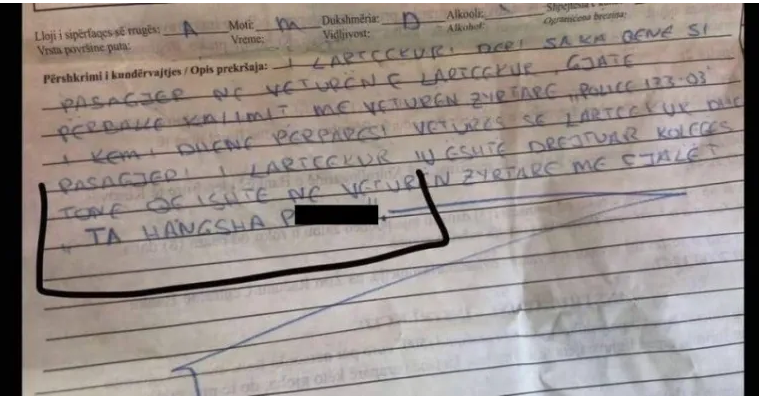 Lloji i sipërfaqes së rrugës: A Moti: M Dukshmëria: D Alkooli: Shpejtësia e
Vrsta površine puta: Vreme: Vidljivost: Alkohol: Ograničena brzina:
Përshkrimi i kundërvajtjes / Opis prekršaja: I LARTCEKURI DERI SA KA QENË SI
PASAGJER NË VETURËN E LARTCEKUR, GJATË
PËRBALLË KALIMIT ME VETURËN ZYRTARE "POLICE 123-03"
I KEMI DHËNË PËRPARËSI VETURËS SË LARTCEKUR DHE
PASAGJERI I LARTCEKUR IU ËSHTË DREJTUAR KOLEGES
TONË QË ISHTE NË VETURËN ZYRTARE ME FJALËT
" TA HANGSHA P